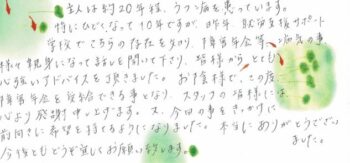 主人は約20年程、うつ病を患っています。
特にひどくなって10年ですが、昨年、就労支援サポート
学校でこちらの存在を知り、障害年金等、病気の事、
様々親身になって話しを聞いて下さり、皆様から、とても
心強いアドバイスを頂きました。お陰様で、この度に
障害年金を受給できる事となり、スタッフの皆様には
心より感謝申し上げます。又、今回の事をきっかけに
前向きに希望を持てるようになりました。本当にありがとうござい
ました。
今後ともどうぞ宜しくお願い致します。